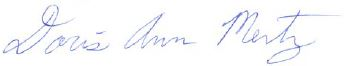 Doris Ann Mertz